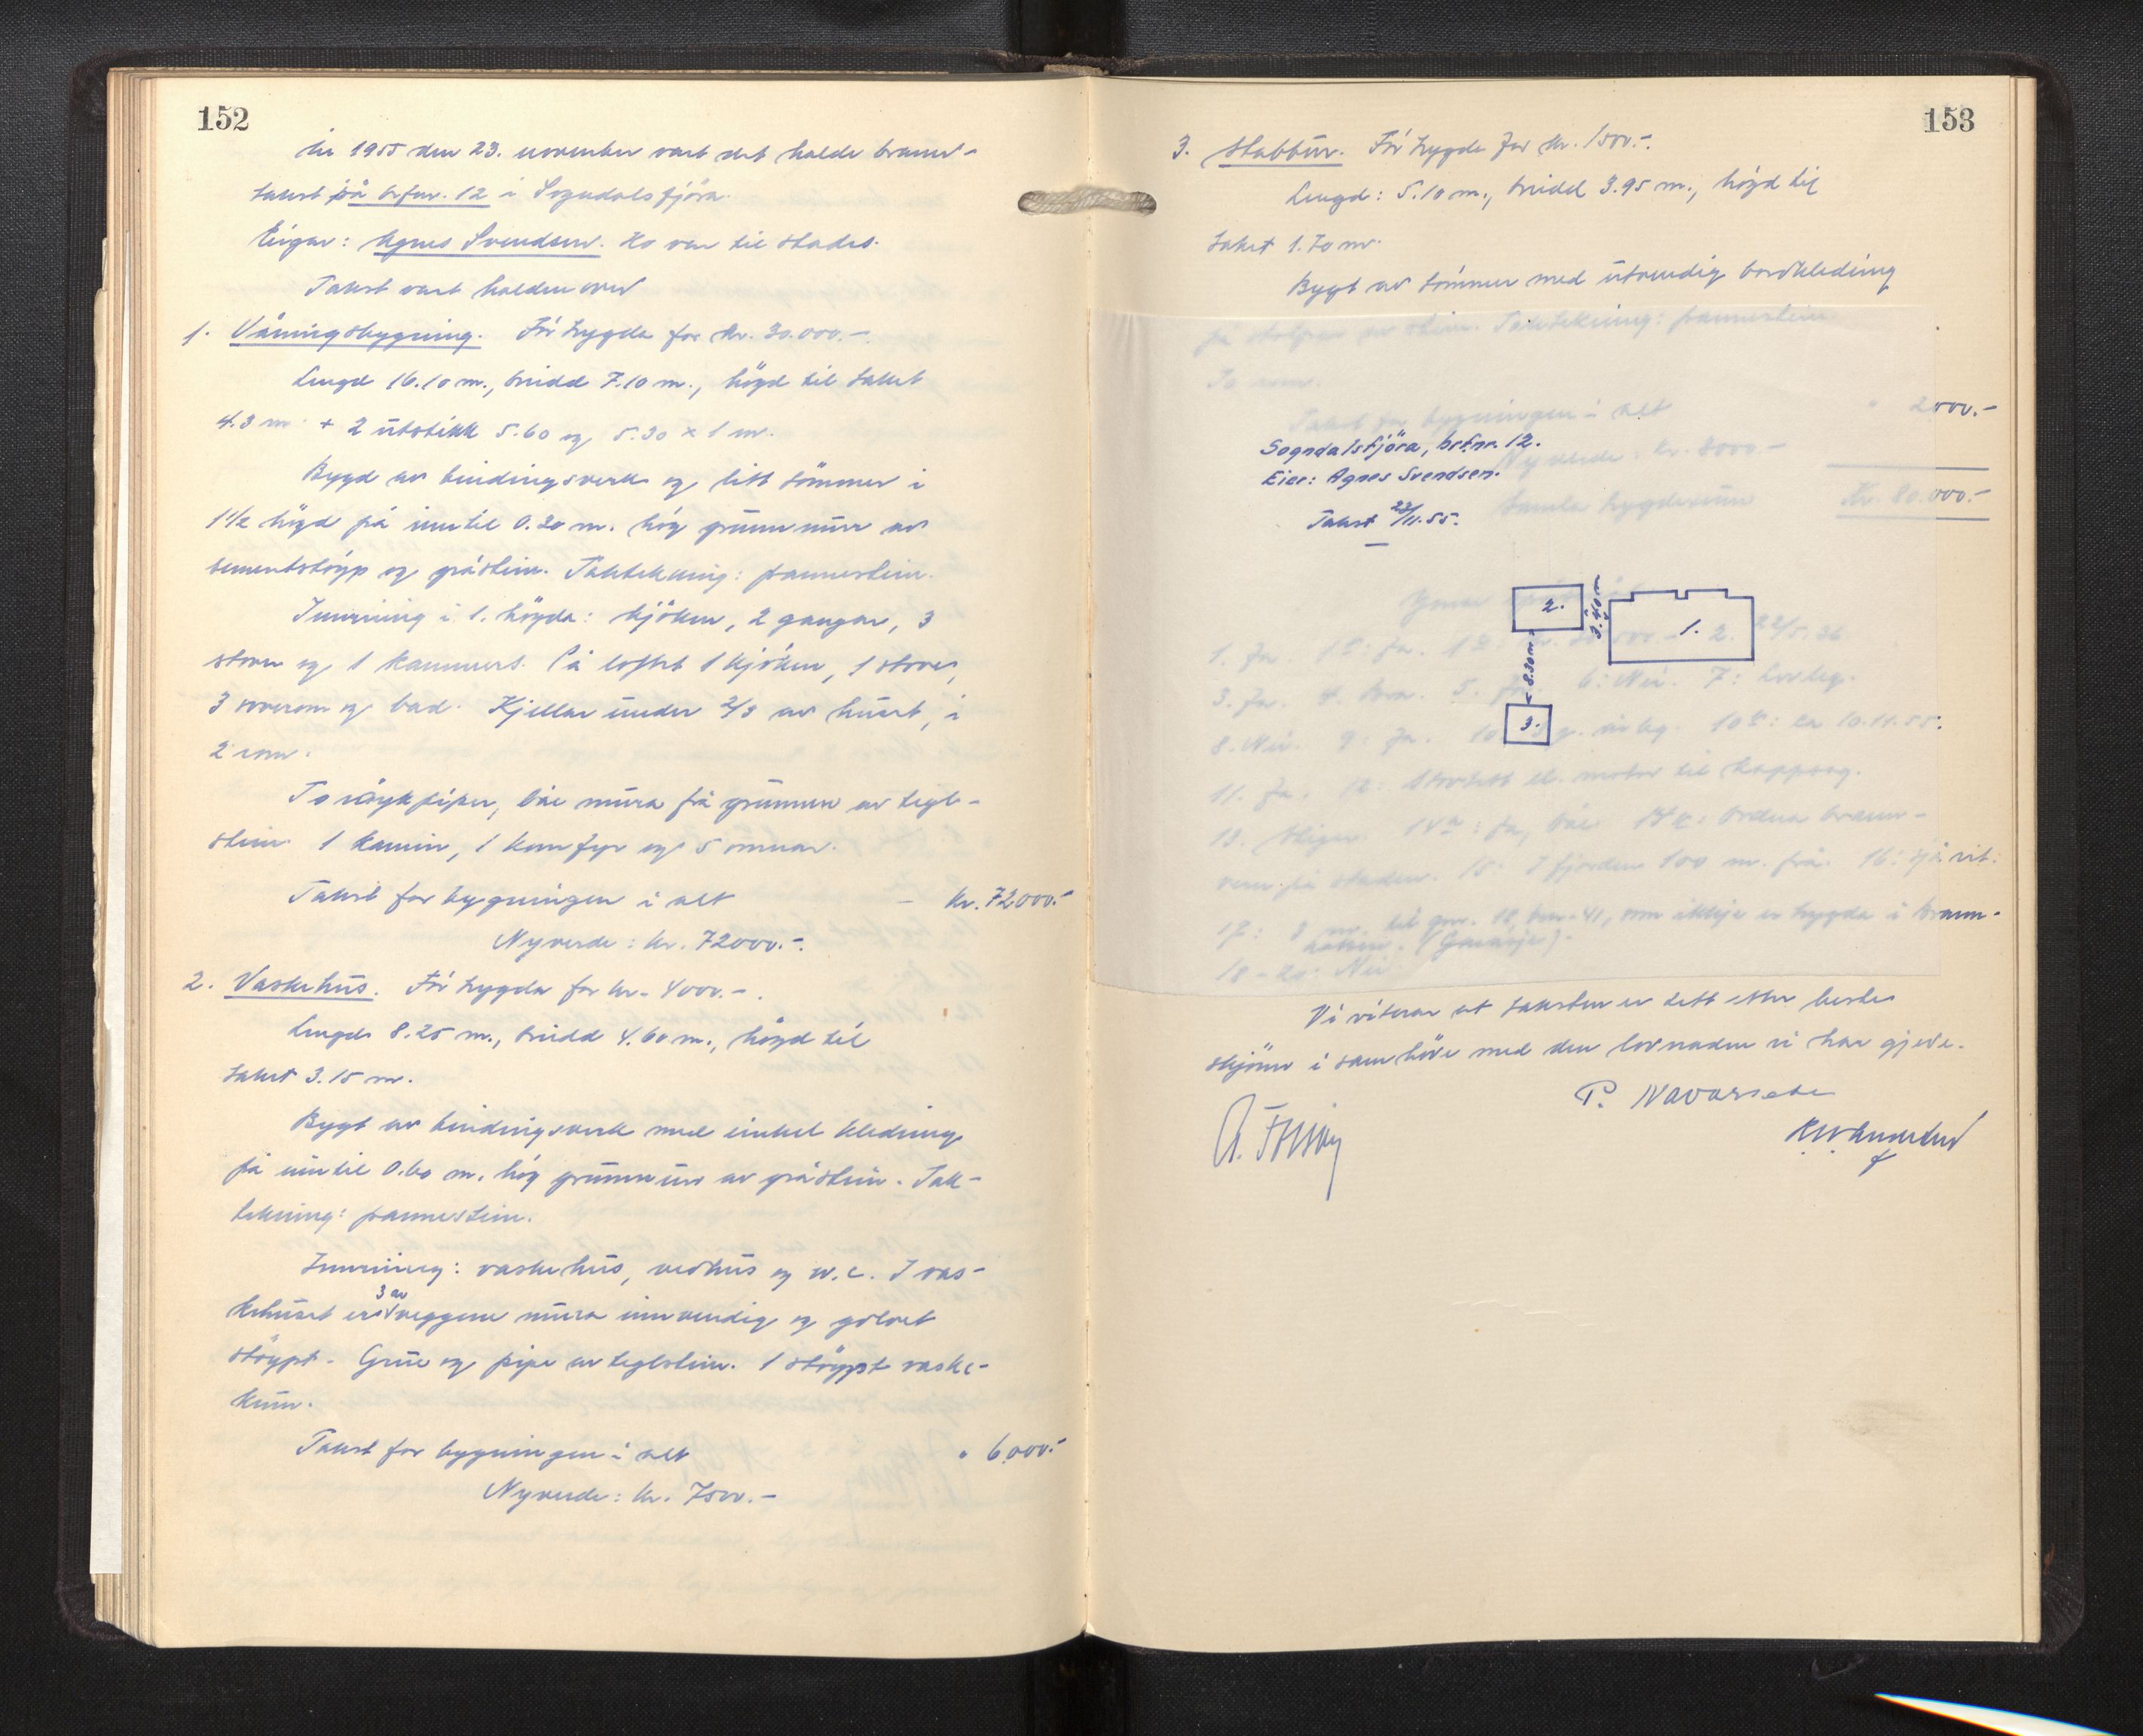 152
År 1955 den 23. november vart det halde brann-
takst på brfnr. 12 i Sogndalsfjöra.
Eigar: Agnes Svendsen. Ho var til stades.
Takst vart halden over
1. Våningsbygning. Før trygda for kr. 30.000.-
Lengd 16.10 m., breidd 7.10 m., högd til taket
4.3 m + 2 utstikk 5.60 og 5.30 x 1 m.
Bygd av bindingsverk og litt tömmer i
1 1/2 högd på inntil 0.20 m. høg grunnmur av
sementstöyp og gråstein. Taktekking: pannestein.
Innreiing i 1. högda: kjöken, 2 gangar, 3
stover og 1 kammers. På loftet 1 kjöken, 1 stove,
3 soverom og bad. Kjellar under 2/3 av huset, i
2 rom.
To röykpiper, båe mura frå grunnen av tegl-
stein. 1 kamin, 1 komfyr og 5 omnar.
Takst for bygningen i alt - kr. 72000.-
Nyverde: kr. 72000.-.
2. Vaskehus. Før trygda for kr. 4000.-.
Lengd 8.25 m., breidd 4.60 m., högd til
taket 3.15 m.
Bygt av bindingsverk med enkel kledning
på inntil 0.60 m. høg grunnmur av gråstein. Tak-
tekking: pannestein.
Innreiing: vaskehus, vedhus og w.c. I vas-
kehuset er 3 av veggene mura innvendig og golvet
stöypt. Grue og pipe av teglstein. 1 stöypt vaske-
kum.
Takst for bygningen i alt " 6000.-
Nyverde: kr. 7500.-
153
3. Stabbur. Før trygda for kr. 1500.-.
Lengd: 5.10 m., breidd 3.95 m., högd til
taket 1.70 m.
Bygt av tömmer med utvendig bordkledning
på stolpar av stein. Taktekking: pannestein.
To rom.
Takst for bygningen i alt " 2000.-
Nyverde: kr. 8000.-
Samla trygdesum Kr. 80.000.-
Sogndalsfjöra, brfnr. 12.
Eier: Agnes Svendsen.
Takst 23/11.55.
2.
3.40 m
1.
8.30 m
3.
3. Ja. 4. Bra. 5. Ja. 6: Nei. 7: Lovleg.
8. Nei. 9: Ja. 10.11.55.
11. Ja. 12: 1 el. motor til kappsag.
vern på staden. 15: I fjorden 100 m. frå. 16:
18-20: Nei
Vi vitnar at taksten er sett etter beste
skjönn i samhöve med den lovnaden vi har gjeve.
P. Navarsete